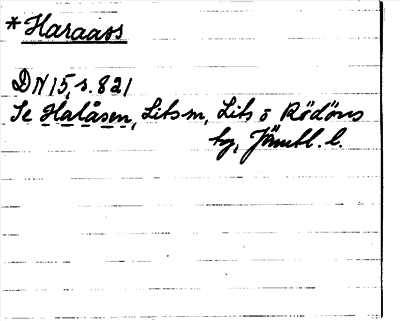 *Haraaos
DN 15, s. 821
Se Halåsen, Lits sn, Lits o Rödöns
tg, Jämtl. l.